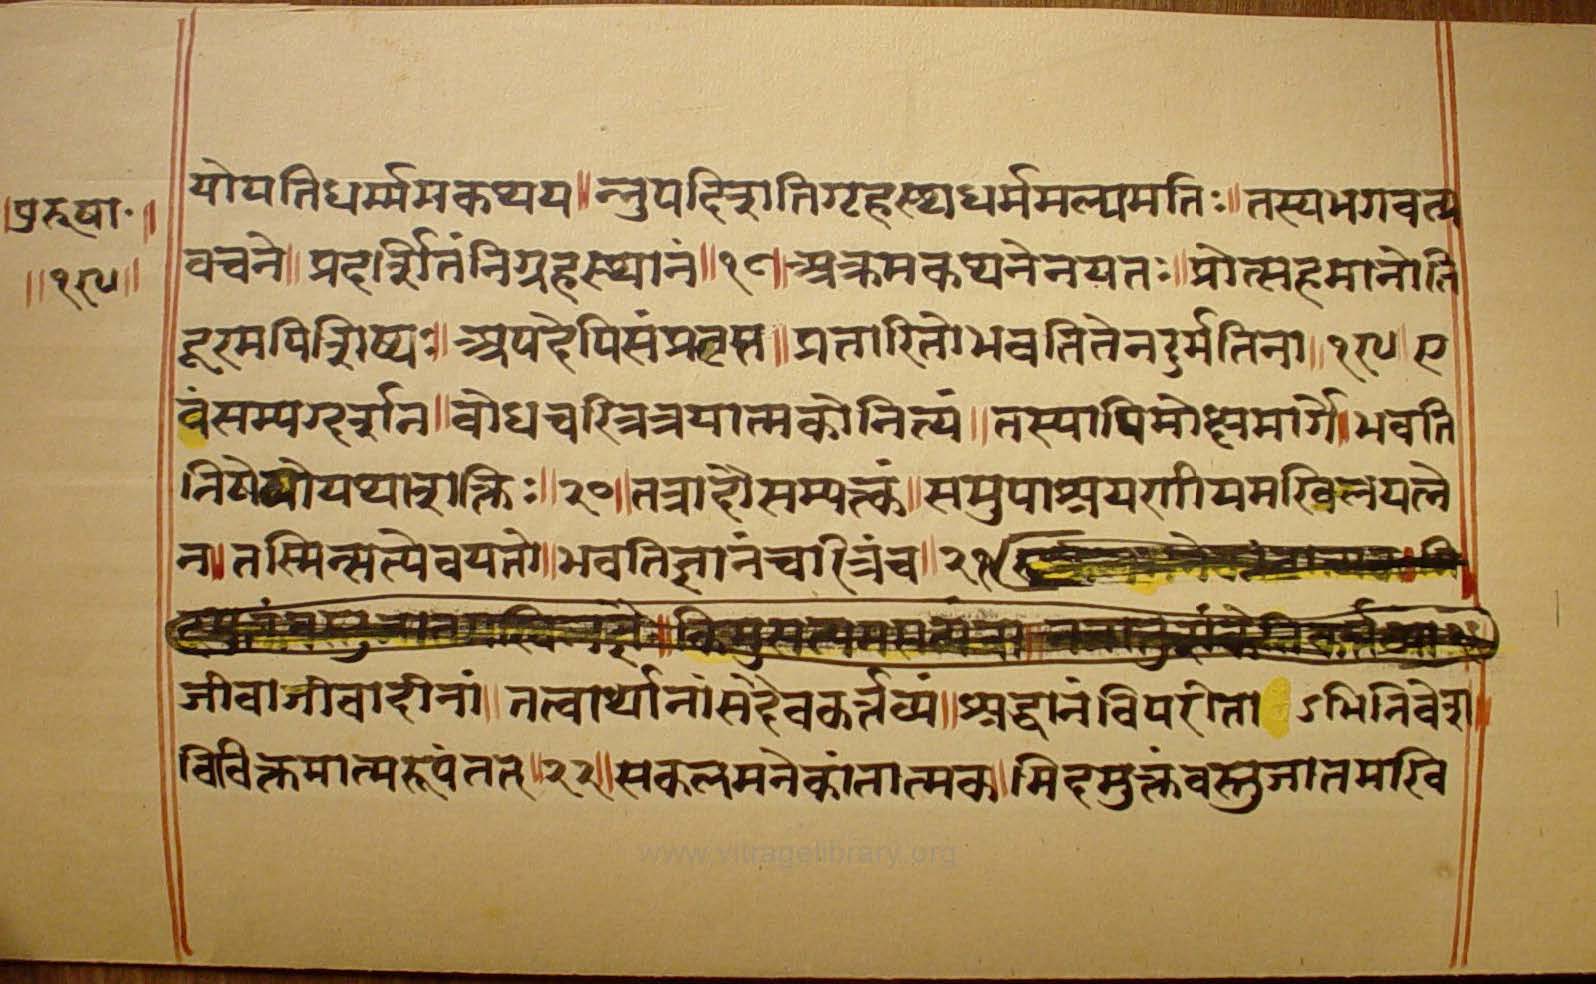 पुरुषा॰॥
॥१९५॥
योयतिधर्म्ममकथय॥न्नुपदिशतिगृहस्थधर्ममल्पमतिः॥तस्यभगवत्प्र
वचने॥प्रदर्शितंनिग्रहस्थानं॥१८॥अक्रमकथनेनयतः॥प्रोत्सहमानोति
दूरमपिशिष्यः॥अपदेपिसंप्रतृप्त॥प्रतारितोभवतितेनदुर्मतिना॥१९५॥ए
वंसम्यग्दर्शन॥बोधचरित्रत्रयात्मकोनित्यं॥तस्यापिमोक्षमार्गो॥भवति
निषेव्योयथाशक्तिः॥२०॥तत्रादौसम्यत्क्कं॥समुपाश्रयणीयमखिलयत्ने
न॥तस्मिन्सत्येवयतो॥भवतिज्ञानंचारित्रंच॥२१
जीवाजीवादीनां॥तत्वार्थानांसदैवकर्त्तव्यं॥श्रद्धानंविपरीता ऽभिनिवेश
विविक्तमात्मरूपंतत्॥२२॥सकलमनेकांतात्मक॥मिदमुक्तंवस्तुजातमखि
www.vitragelibrary.org